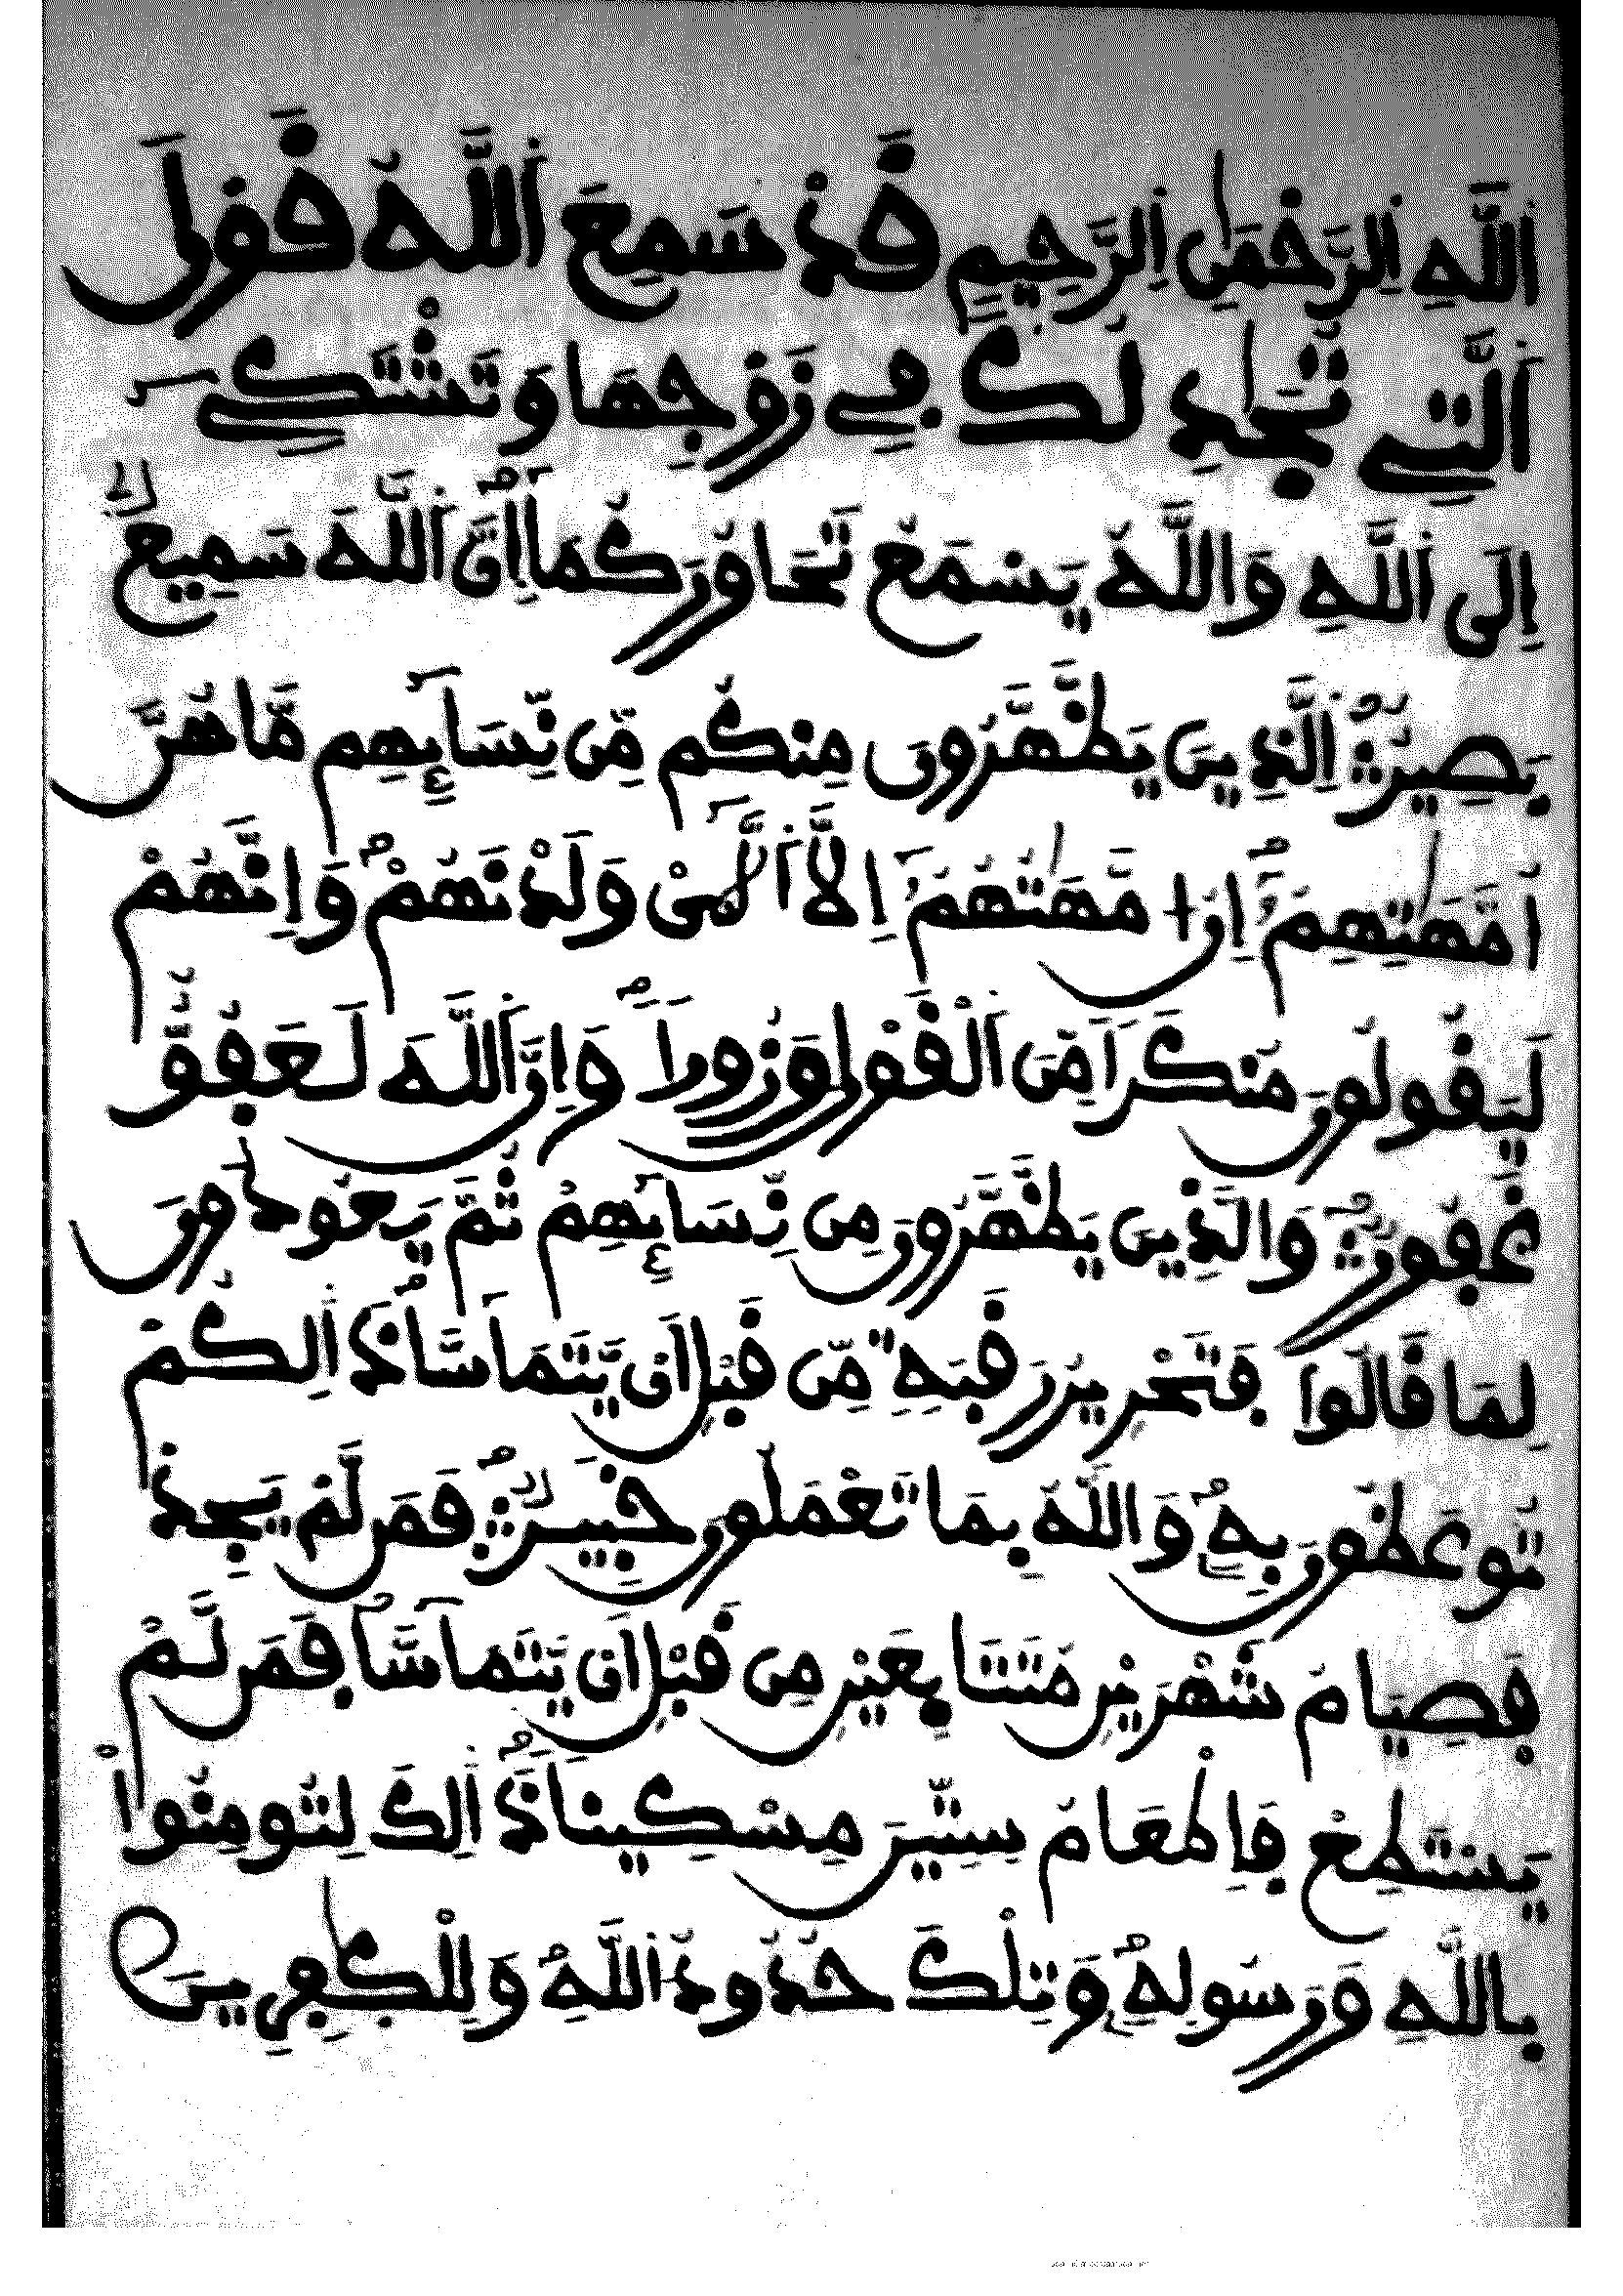 اَ۬للَّهِ اِ۬لرَّحْمَٰنِ اِ۬لرَّحِيمِ قَدْ سَمِعَ اَ۬للَّهُ قَوْلَ
اَ۬لتِے تُجَٰدِلُكَ فِے زَوْجِهَا وَتَشْتَكِےٓ
إِلَى اَ۬للَّهِ وَاللَّهُ يَسْمَعُ تَحَاوُرَكُمَآ إِنَّ اَ۬للَّهَ سَمِيعُۢ
بَصِيرٌ اِ۬لَّذِينَ يَظَّهَّرُونَ مِنكُم مِّن نِّسَآئِهِم مَّا هُنَّ
أُمَّهَٰتِهِمُۥٓ إِنْ أُمَّهَٰتُهُمُۥٓ إِلَّا اَ۬لَّٰٓےْ وَلَدْنَهُمْ وَإِنَّهُمْ
لَيَقُولُونَ مُنكَراً مِّنَ اَ۬لْقَوْلِ وَزُوراً وَإِنَّ اَ۬للَّهَ لَعَفُوٌّ
غَفُورٌ وَالَّذِينَ يَظَّهَّرُونَ مِن نِّسَآئِهِمْ ثُمَّ يَعُودُونَ
لِمَا قَالُواْ فَتَحْرِيرُ رَقَبَةٍ مِّن قَبْلِ أَنْ يَّتَمَآسَّا ذَٰلِكُمْ
تُوعَظُونَ بِهِۦ وَاللَّهُ بِمَا تَعْمَلُونَ خَبِيرٌ فَمَن لَّمْ يَجِدْ
فَصِيَامُ شَهْرَيْنِ مُتَتَابِعَيْنِ مِن قَبْلِ أَنْ يَّتَمَآسَّا فَمَن لَّمْ
يَسْتَطِعْ فَإِطْعَامُ سِتِّينَ مِسْكِيناً ذَٰلِكَ لِتُومِنُواْ
بِاللَّهِ وَرَسُولِهِۦ وَتِلْكَ حُدُودُ اُ۬للَّهِ وَلِلْكَٰفِرِينَ